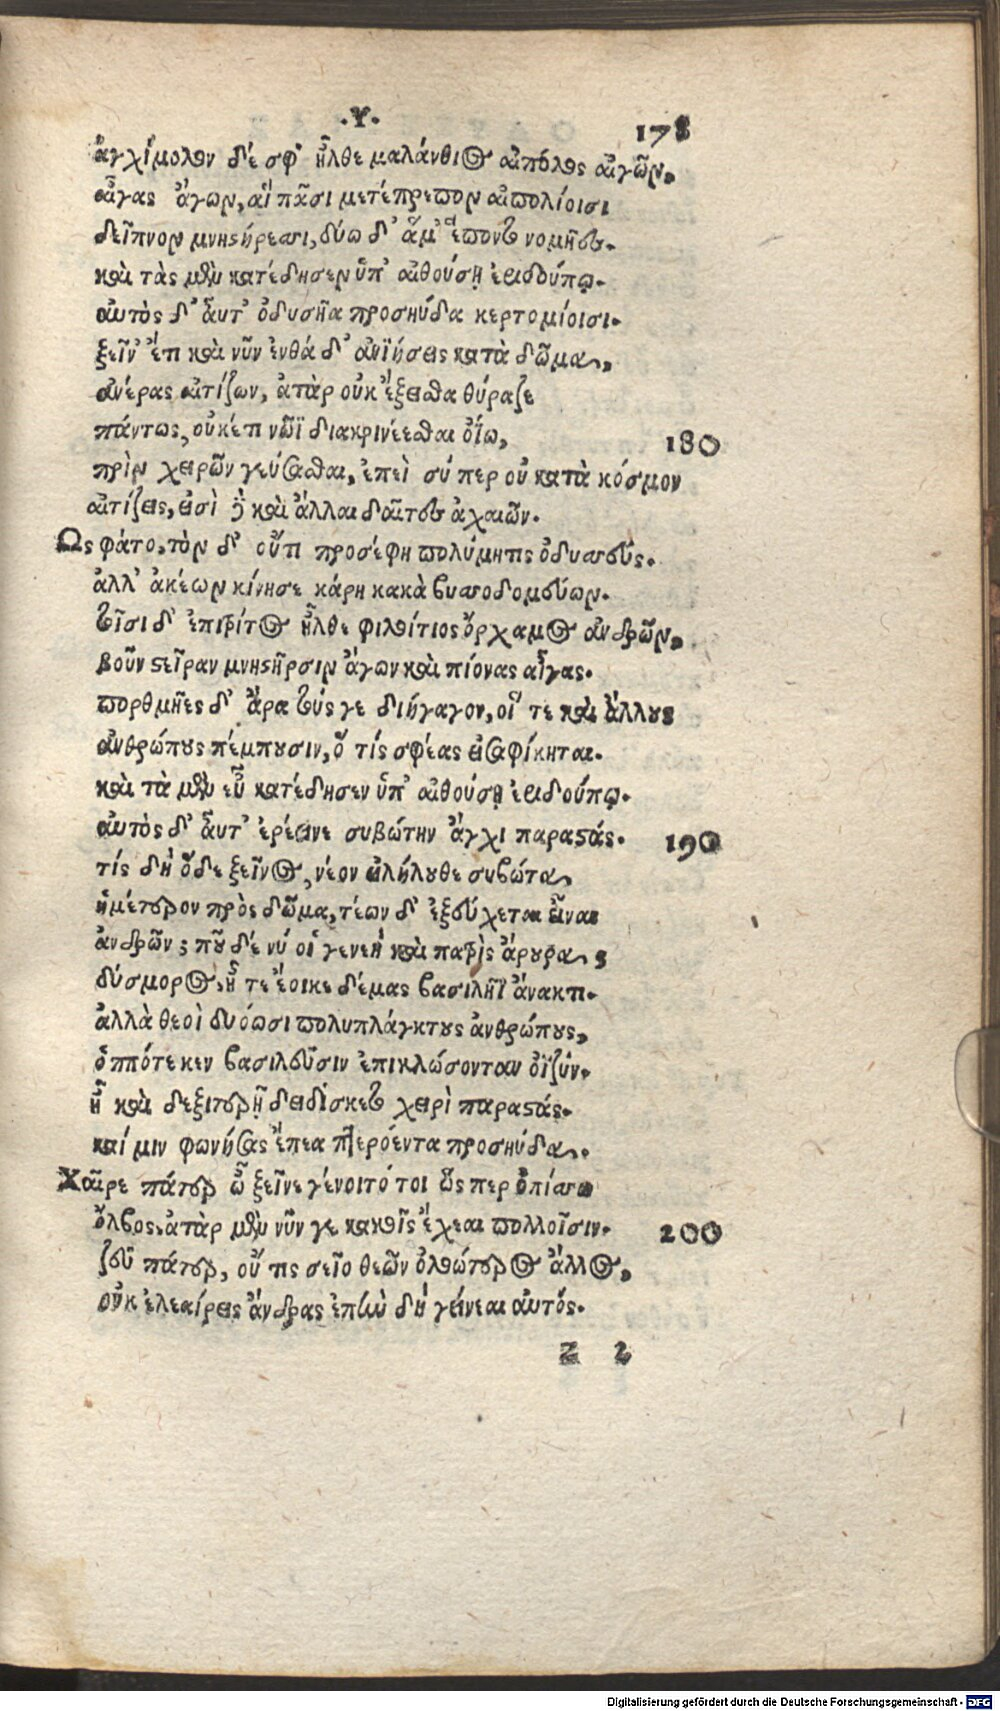 ·Υ·
178
ἀγχίμολον δέ σφ' ἦλθε μελάνθιος αἰπόλος αἰγῶν,
αἶγας ἄγων, αἳ πᾶσι μετέπρεπον αἰπολίοισι
δεῖπνον μνηστήρεσσι, δύω δ' ἅμ' ἕποντο νομῆες.
καὶ τὰς μὲν κατέδησεν ὑπ' αἰθούσῃ ἐριδούπῳ.
αὐτὸς δ' αὖτ' ὀδυσῆα προσηύδα κερτομίοισι.
ξεῖν' ἔτι καὶ νῦν ἐνθά δ' ἀνιήσεις κατὰ δῶμα,
ἀνέρας αἰτίζων, ἀτὰρ οὐκ ἔξεισθα θύραζε
πάντως, οὐκέτι νῶϊ διακρινέεσθαι ὀΐω, 180
πρὶν χειρῶν γεύσασθαι, ἐπεὶ σύ περ οὐ κατὰ κόσμον
αἰτίζεις, εἰσὶ δὲ καὶ ἄλλαι δαῖτες ἀχαιῶν.
Ως φάτο, τὸν δ' οὔτι προσέφη πολύμητις ὀδυσσεύς.
ἀλλ' ἀκέων κίνησε κάρη κακὰ βυσσοδομεύων.
τοῖσι δ' ἐπὶ τρίτος ἦλθε φιλοίτιος ὄρχαμος ἀνδρῶν,
βοῦν στεῖραν μνηστῆρσιν ἄγων καὶ πίονας αἶγας.
πορθμῆες δ' ἄρα τούς γε διήγαγον, οἵ τε καὶ ἄλλους
ἀνθρώπους πέμπουσιν, ὅ τίς σφέας εἰσαφίκηται.
καὶ τὰ μὲν εὖ κατέδησεν ὑπ' αἰθούσῃ ἐριδούπῳ.
αὐτὸς δ' αὖτ' ἐρέεινε συβώτην ἄγχι παραστάς. 190
τίς δὴ ὅδε ξεῖνος, νέον εἰλήλουθε συβῶτα,
ἡμέτερον πρὸς δῶμα, τέων δ' ἐξεύχεται εἶναι
ἀνδρῶν; ποῦ δέ νύ οἱ γενεὴ καὶ πατρὶς ἄρουρα;
δύσμορος, ἦ τε ἔοικε δέμας βασιλῆϊ ἄνακτι.
ἀλλὰ θεοὶ δυόωσι πολυπλάγκτους ἀνθρώπους,
ὁππότε κεν βασιλεῦσιν ἐπικλώσονται ὀϊζύν.
ἦ καὶ δεξιτερῇ δειδίσκετο χειρὶ παραστάς.
καί μιν φωνήσας ἔπεα πτερόεντα προσηύδα.
Χαῖρε πάτερ ὦ ξεῖνε γένοιτό τοι ὥς περ ὀπίσσω
ὄλβος. ἀτὰρ μὲν νῦν γε κακοῖς ἔχεαι πολλοῖσιν. 200
ζεῦ πάτερ, οὔ τις σεῖο θεῶν ὀλοώτερος ἄλλος,
οὐκ ἐλεαίρεις ἄνδρας ἐπὴν δὴ γείνεαι αὐτός.
Z 2
Digitalisierung gefördert durch die Deutsche Forschungsgemeinschaft - DFG